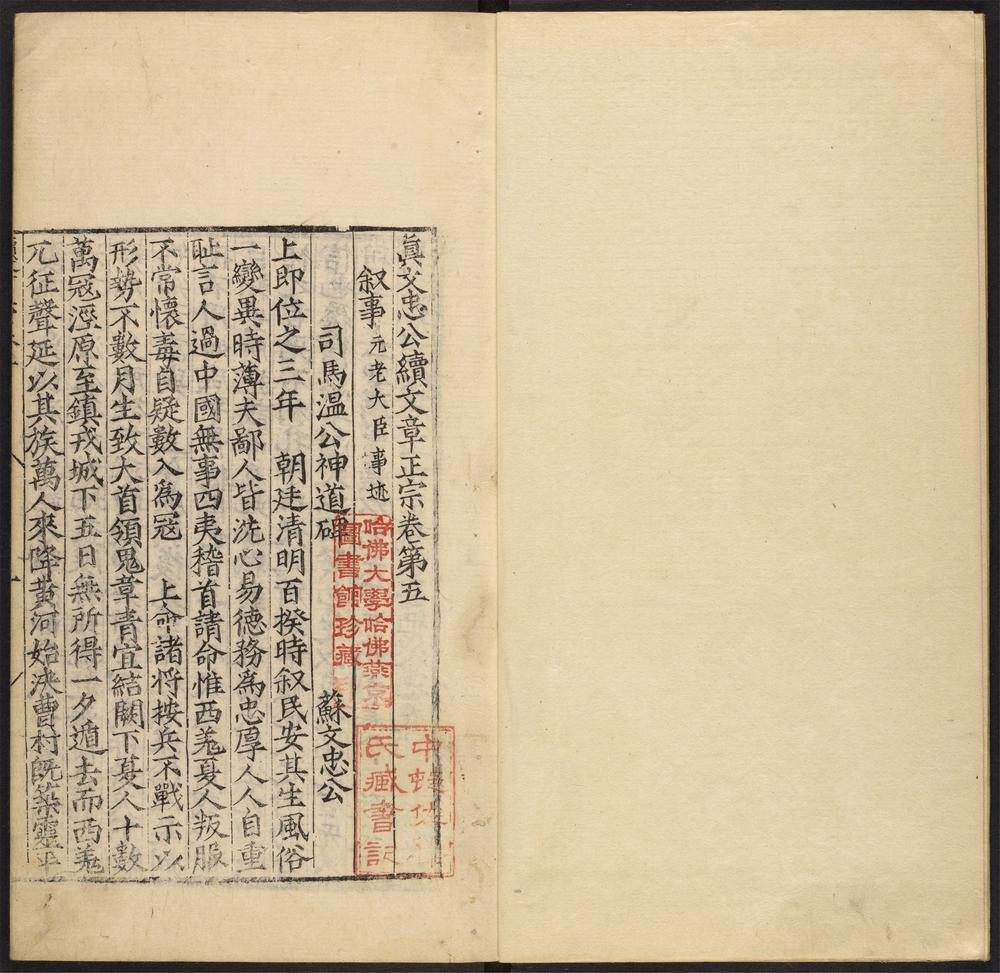 真文忠公續文章正宗卷第五
叙事 元老大臣事迹
司馬温公神道碑 蘇文忠公
上即位之三年 朝廷清明百揆時叙民安其生風俗
一變異時薄夫鄙人皆洗心易德務為忠厚人人自重
耻言人過中國無事四夷稽首請命惟西羗夏人叛服
不常懷毒自疑數入為冦 上命諸将按兵不戰示以
形勢不數月生致大首領鬼章青宜結闕下夏人十數
萬冦涇原至鎮戎城下五日無所得一夕遁去而西羗
兀征聲延以其族萬人來降黄河始决曹村旣築靈平
哈佛大學哈佛燕京
圖書館珍藏
氏藏書記